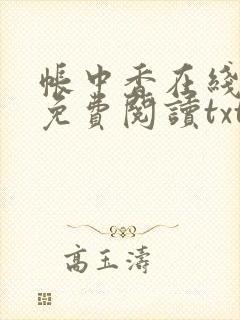 帳中香在綫
免費閱讀txt
高玉濤